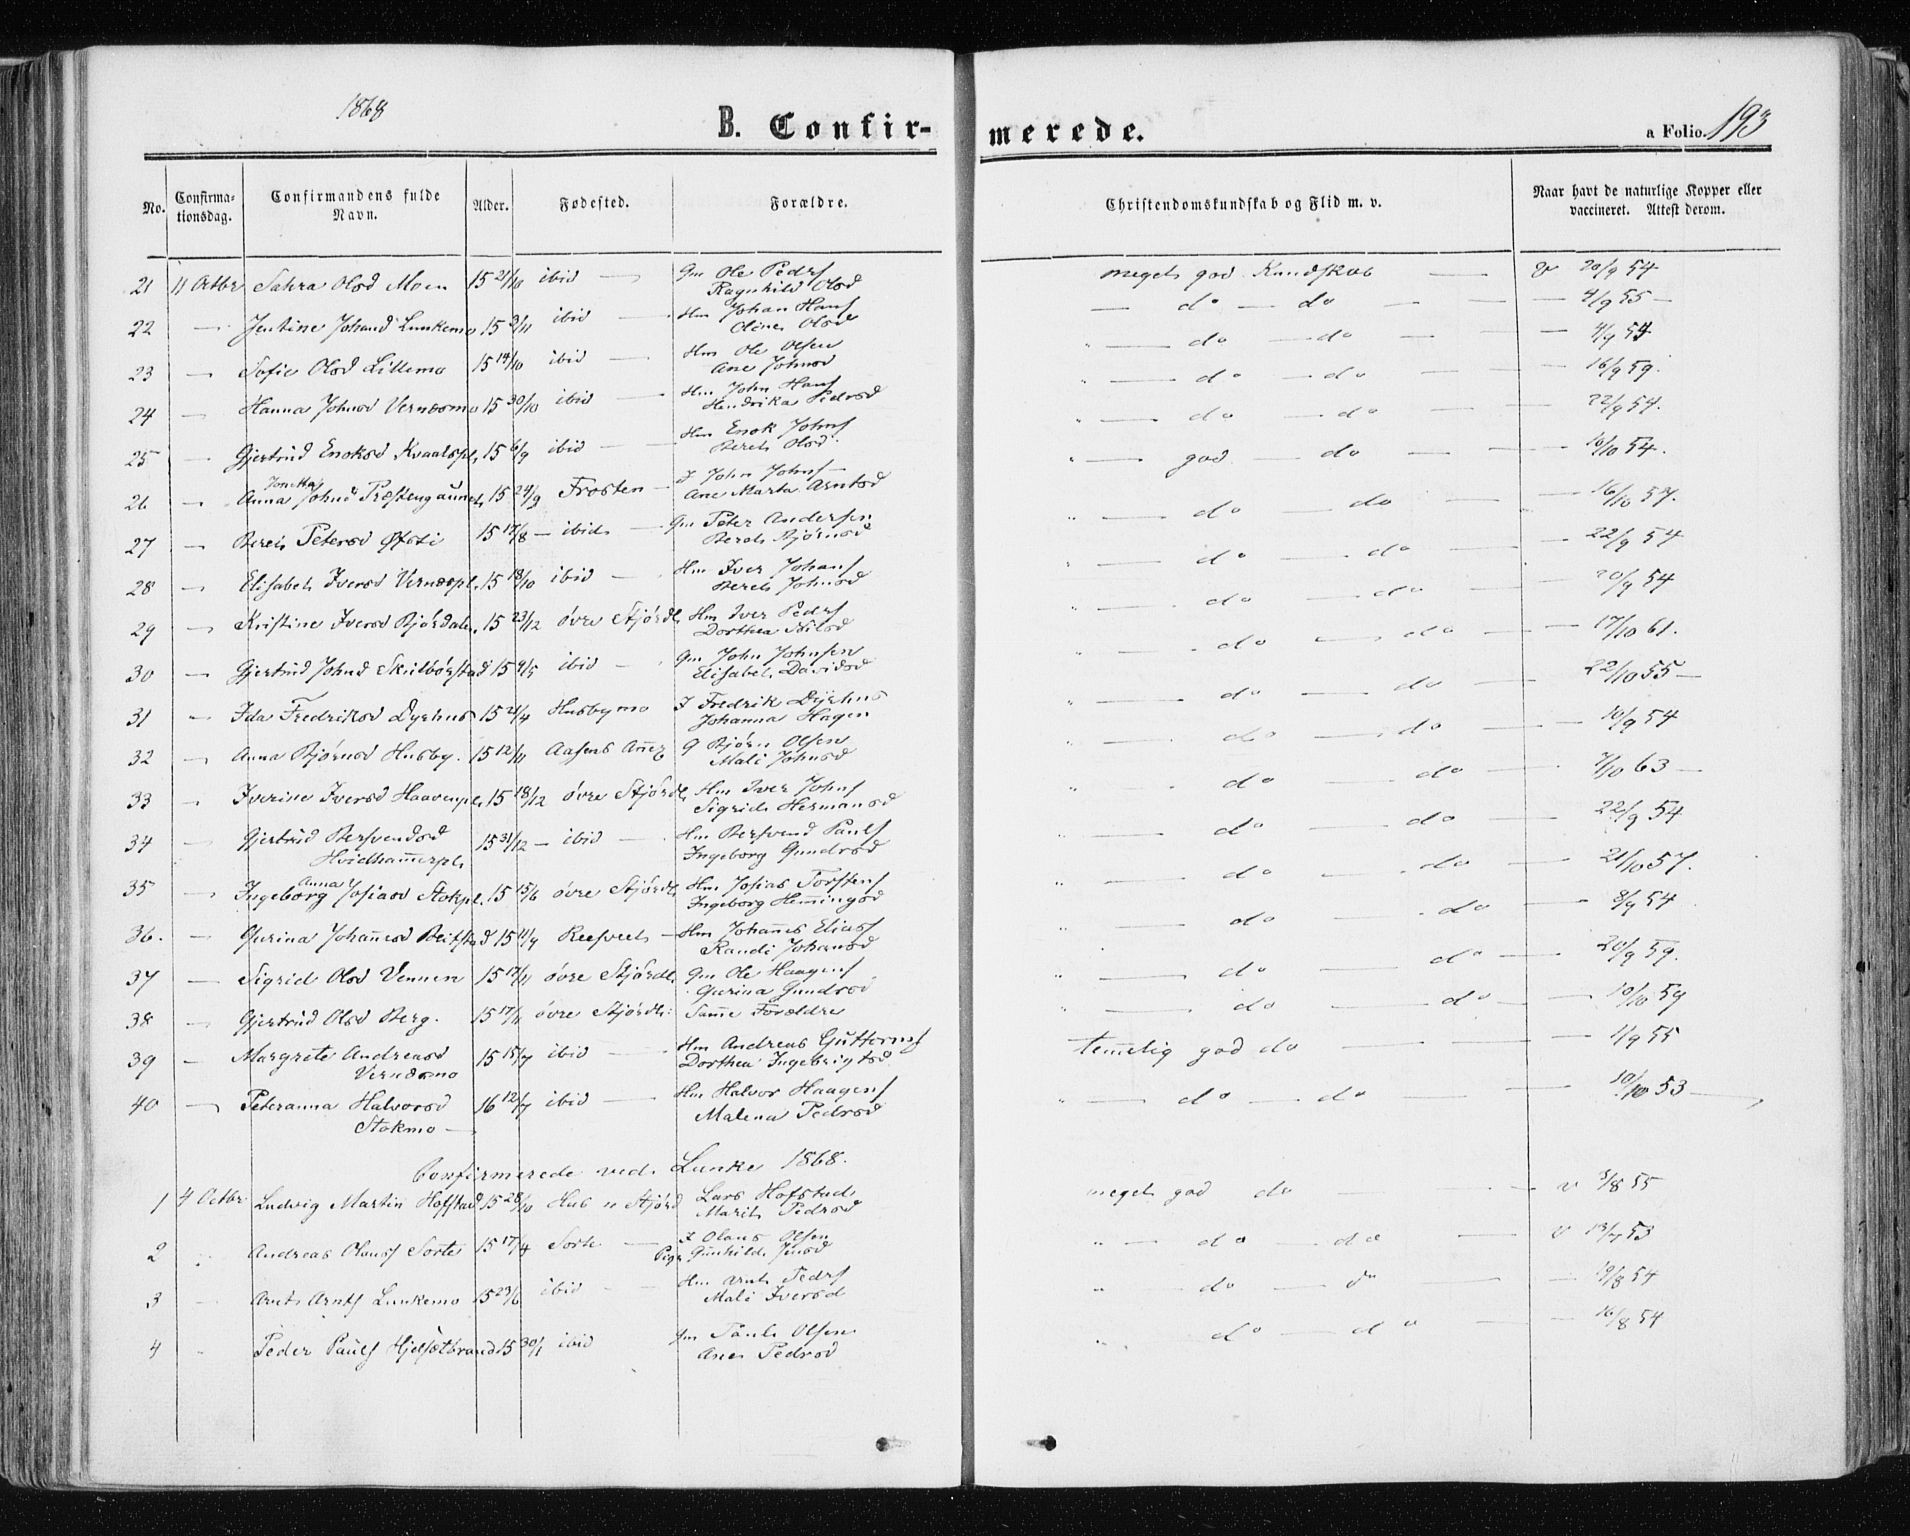 1868
B. Confir-
merede.
a Folio. 193
No.
Confirma-
tionsdag.
Confirmandens fulde
Navn.
Alder.
Fødested.
Forældre.
Christendomskundskab og Flid m. v.
Naar havt de naturlige Kopper eller
vaccineret. Attest derom.
21 11 Octbr Sahra Olsd Moen 15 21/10 ibid — Gm Ole Peders
Ragnhild Olsd
meget god Kundskab — v 20/9 54
22 — Jentine Johansd Lunkemo 15 2/11 ibid — Hm Johan Hans
Oline Olsd
— do — do — 4/9 55 —
23 — Sofie Olsd Lillemo 15 14/10 ibid — Hm Ole Olsen
Ane Johnsd
" — do — do — 4/9 54
24 — Hanna Johnsd Vernæsmo 15 30/10 ibid — Hm John Hans
Hendrika Pedrsd
" — do — do — 16/9 59.
25 — Gjertrud Enoksd Kvaalspl. 15 6/9 ibid — Hm Enok Johns
Beret Olsd.
" — do — do — 22/9 54.
26 — Anna Jonetta Johnsd Præstengaunet 15 24/9 Frosten — I John Johns —
Ane Marta Arntsd
" — god — do — 16/10 54.
27 — Beret Petersd Øfsti 15 17/8 — ibid — Gm Peter Andersen
Beret Bjørnsd
" — do — do — 16/10 57.
28 — Elisabet Iversd Vernæspl. 15 18/10 ibid — Hm Iver Johans
Beret Johnsd
" — do — do — 22/9 54
29 — Kristine Iversd Bjørdalen. 15 23/12 øvre Stjørdl. Hm Iver Peders
Dorthea Nilsd
" — do — do — 20/9 54
30 — Gjertrud Johnsd Skielbørstad 15 9/5 ibid — Gm John Johnsen
Elisabet Davidsd
" — do — do — 17/10 61.
31 — Ida Fredriksd Dyrhus 15 21/4 Husbymo I Fredrik Dyrhus
Johanna Hagen
" — do — do — 22/10 55 —
32 — Anna Bjørnsd Husby. 15 12/11 Aasens Annex G Bjørn Olsen
Mali Johnsd
" — do — do — 10/9 54
33 — Iverine Iversd Haavenpl. 15 18/12 øvre Stjørdl. Hm Iver Johns
Sigrid Hermansd
" — do — do — 7/10 63 —
34 — Gjertrud Bersvendsd
Hvidhammerpl.
15 31/12 — ibid — Hm Bersvend Pauls
Ingeborg Gundrsd
" — do — do — 22/9 54
35 — Ingeborg Anna Josiasd Stokpl. 15 15/6 øvre Stjørdl. Hm Josias Torstens
Ingeborg Hemingsd
" — do — do — 21/10 57.
36. — Gurina Johannesd Beitstad 15 11/9 — Hm Johannes Elias
Randi Johansd
" — do — do — 8/9 54
37 — Sigrid Olsd Vennen 15 17/11 øvre Stjørdl. Gm Ole Haagens
Gurina Gundrsd
" — do — do — 20/9 59.
38 — Gjertrud Olsd Berg. 15 17/11 øvre Stjørdl: Samme Forældre
" — do — do — 10/10 59
39 — Margrete Andreasd
Vernæsmo
15 15/7 ibid — Hm Andreas Guttorms
Dorthea Ingebrigtsd
temmelig god do — 1/9 55
40 — Peteranna Halvorsd
Stokmo —
16 12/7 ibid — Hm Halvor Haagens
Malena Pedrsd
" — do — do — 10/10 53 —
Confirmerede ved Lunke 1868.
1 4 Octbr Ludvig Martin Hofstad 15 28/10 Hus n Stjørd Lars Hofstad
Marit Pedrsd
meget god do — v 3/8 55
2 " Andreas Olaus Sorte 15 17/4 Sorte — I Olaus Olsen
Pige Gunhild Jensd
" — do — do — v 13/7 53
3 — Arnt Arnts Lunkemo 15 23/6 ibid — Hm Arnt Peders
Mali Iversd
" — do — do — 19/8 54
4 " Peder Pauls Hjelsetbrand 15 30/1 ibid Hm Paul Olsen
Ane Pedrsd
" do — do — 16/8 54